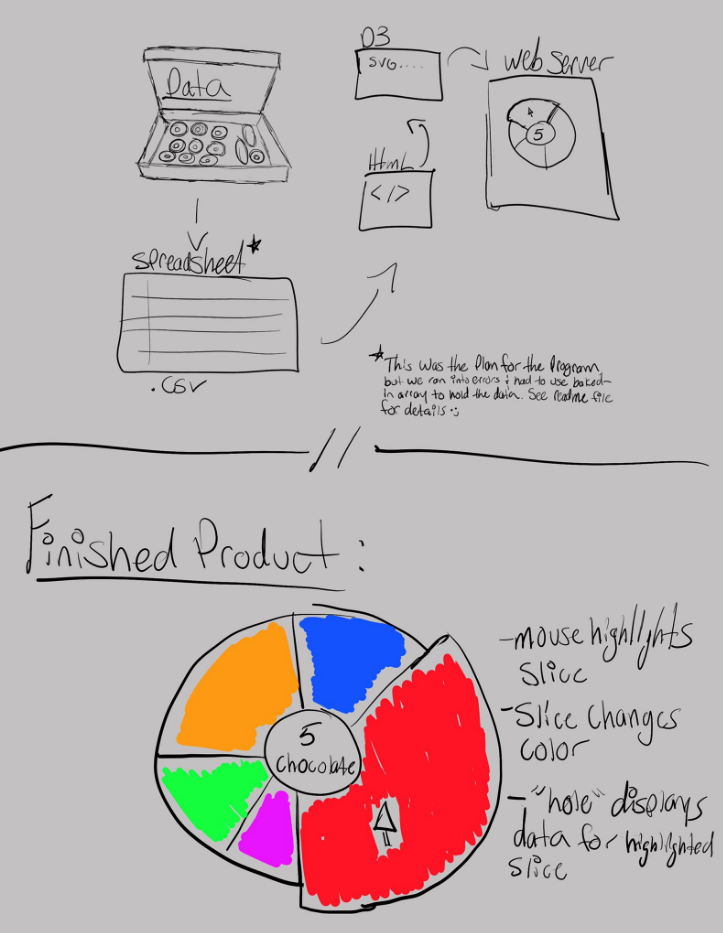 Data
D3
SVG....
Web Server
5
HTML
</>
Spreadsheet*
.CSV
* This was the Plan for the Program,
but we ran into errors & had to use baked-
in array to hold the data. See readme file
for details :)
Finished Product:
5
Chocolate
- mouse highlights
slice
- Slice Changes
color
- "hole" displays
data for highlighted
slice